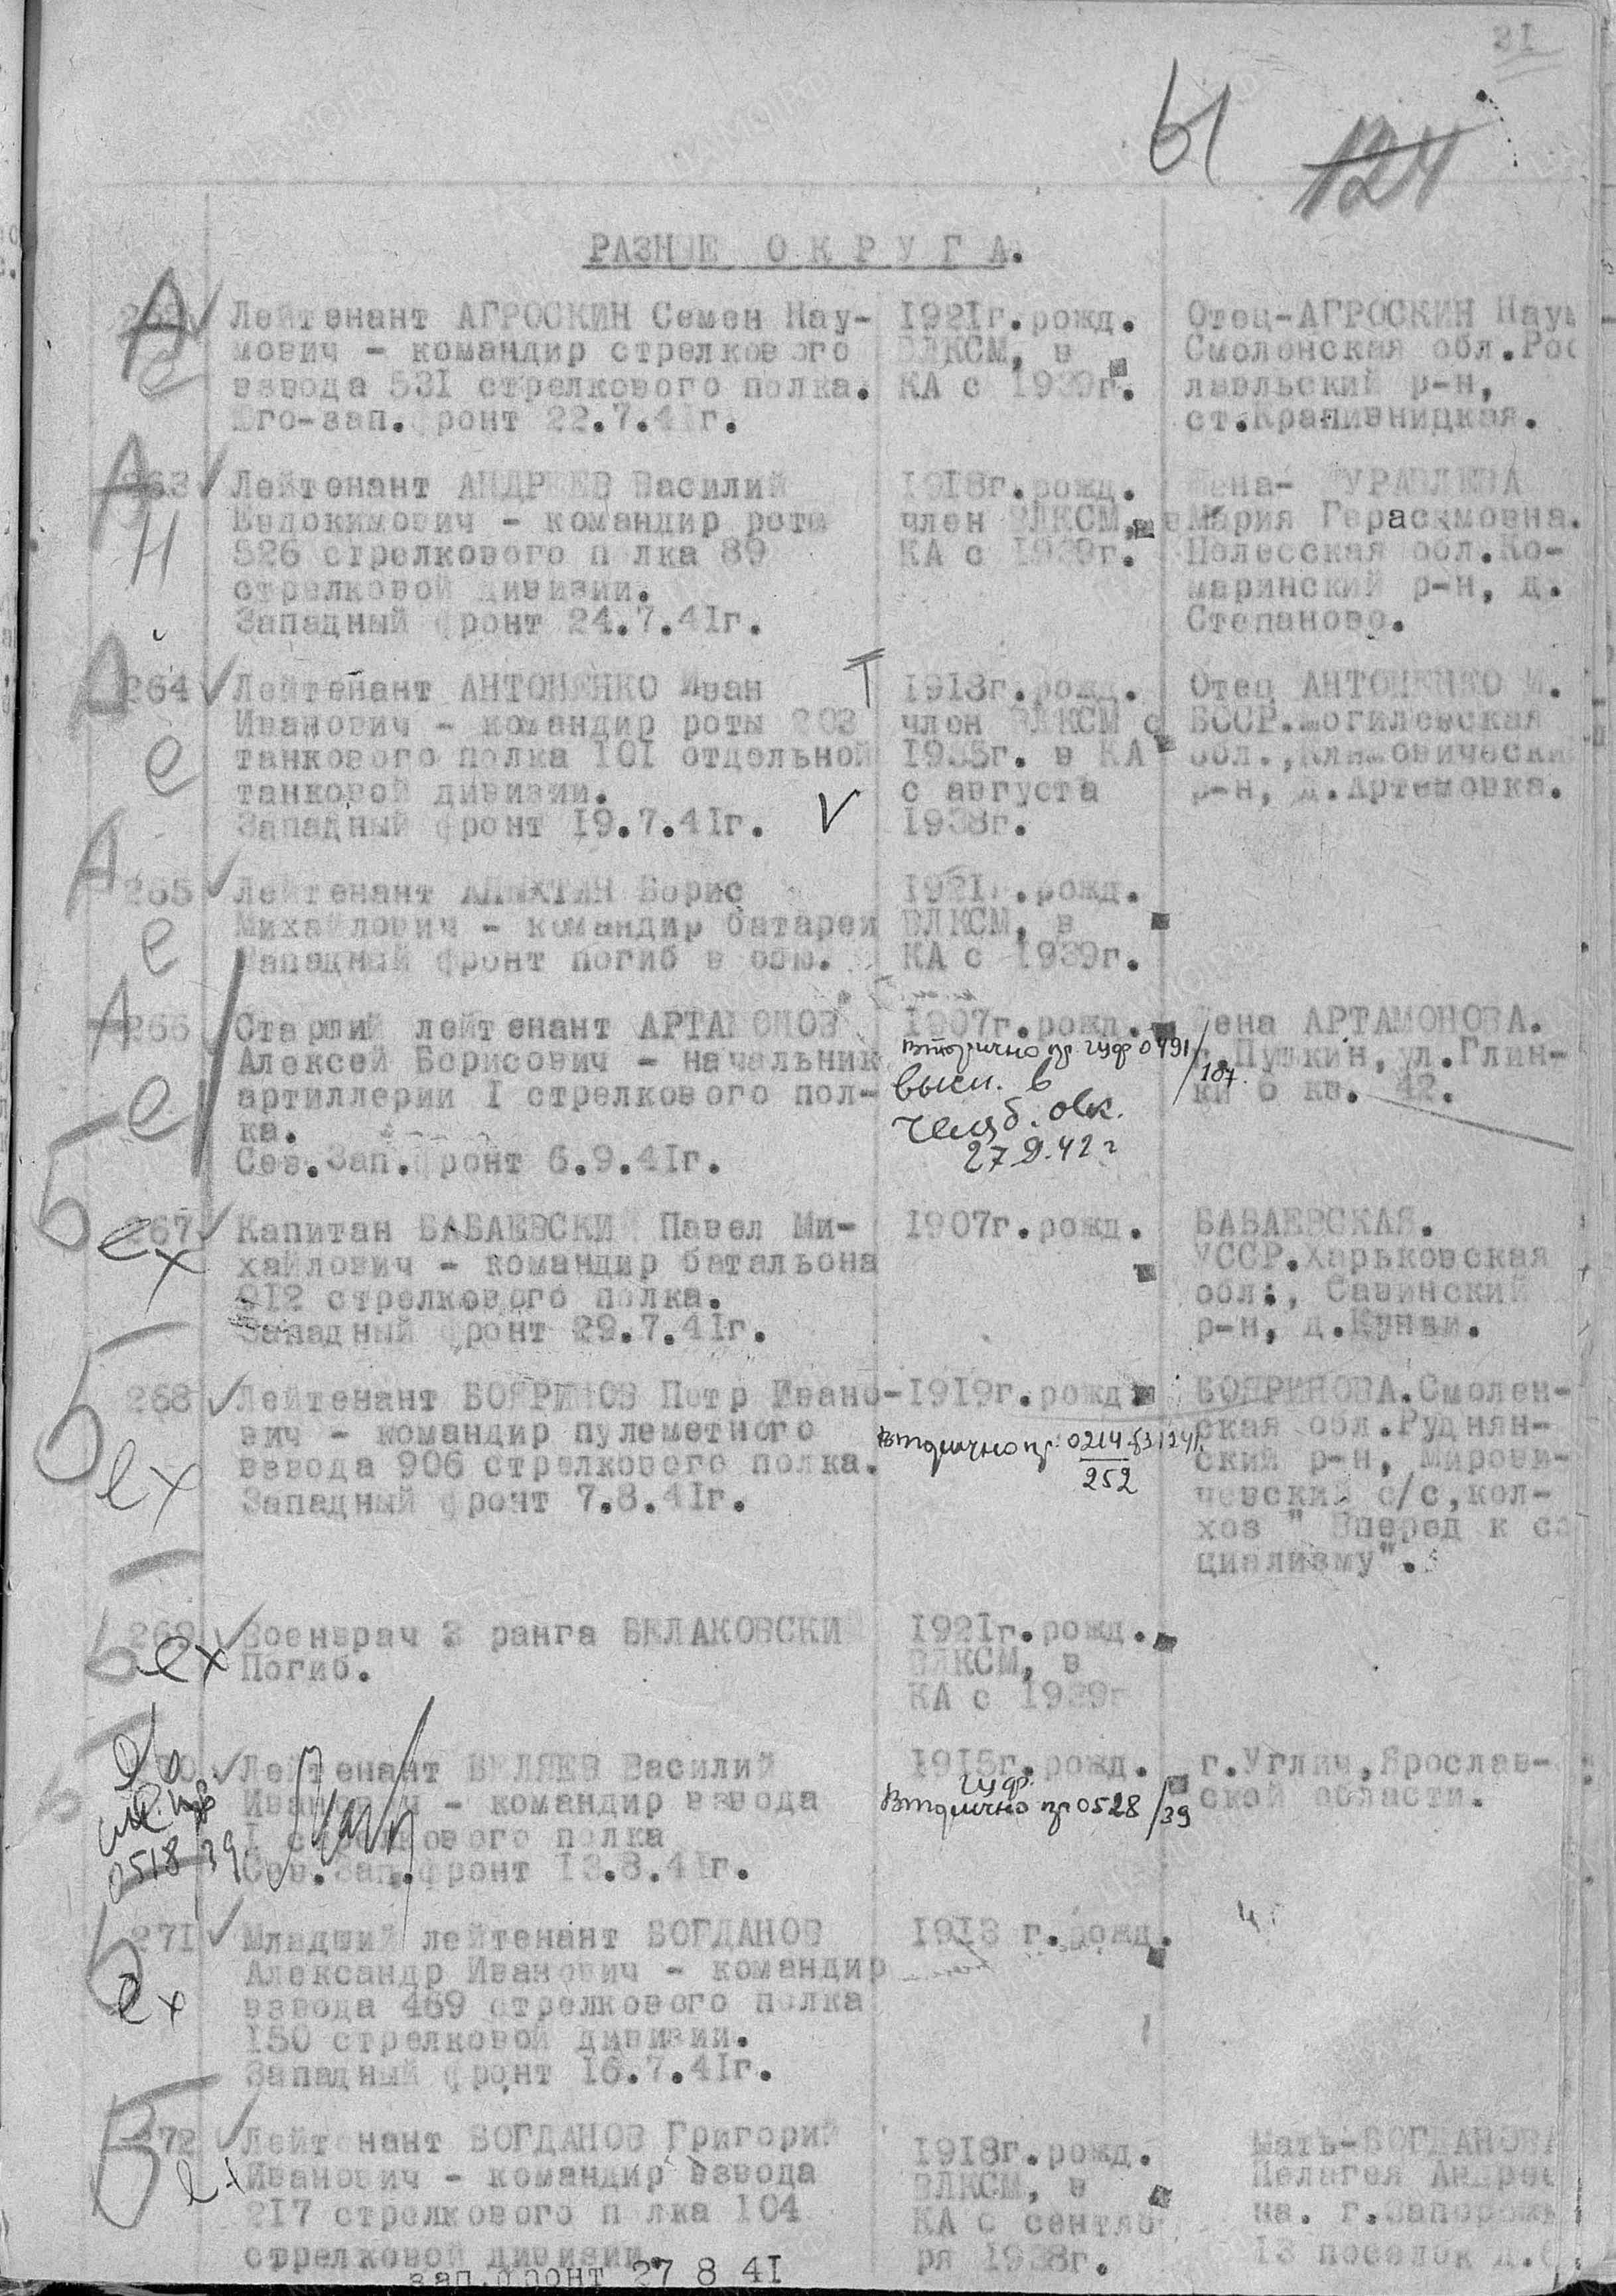 21
61
124
РАЗНЫЕ ОКРУГА.
262 Лейтенант АГРОСКИН Семен Нау-
мович - командир стрелкового
взвода 531 стрелкового полка.
Юго-зап. фронт 22.7.41г.
1921г.рожд.
ВЛКСМ, в
КА с 1939г.
Отец-АГРОСКИН Наум
Смоленская обл.Рос
лавльский р-н,
ст.Крапивницкая.
А
е
263 Лейтенант АНДРЕЕВ Василий
Евдокимович - командир роты
526 стрелкового полка 89
стрелковой дивизии.
Западный фронт 24.7.41г.
1918г.рожд.
член ВЛКСМ, в
КА с 1939г.
Жена- ЖУРАВЛЕВА
Мария Герасимовна.
Полесская обл.Ко-
маринский р-н, д.
Степаново.
А
Н
264 Лейтенант АНТОНЕНКО Иван
Иванович - командир роты 203
танкового полка 101 отдельной
танковой дивизии.
Западный фронт 19.7.41г.
1918г.рожд.
член ВЛКСМ с
1935г. в КА
с августа
1938г.
Отец АНТОНЕНКО И.
БССР.Могилевская
обл.,Климовически
р-н, д.Артемовка.
А
е
265 Лейтенант Борис
Михайлович - командир батареи
Западный фронт погиб в бою.
1921 .рожд.
ВЛКСМ, в
КА с 1939г.
А
е
266 Старший лейтенант АРТАМОНОВ
Алексей Борисович - начальник
артиллерии I стрелкового пол-
ка.
Сев.Зап.фронт 6.9.41г.
1907г.рожд.
вторично пр. гуф 0491/107.
высл. в
Челяб. овк.
27.9.42г
Жена АРТАМОНОВА.
г.Пушкин, ул.Глин-
ки 6 кв. 42.
А
е
267 Капитан БАБАЕВСКИЙ Павел Ми-
хайлович - командир батальона
912 стрелкового полка.
Западный фронт 29.7.41г.
1907г.рожд.
БАБАЕВСКАЯ.
УССР.Харьковская
обл:, Савинский
р-н, д.
Б
ех
268 Лейтенант БОЯРИНОВ Петр Ивано-
вич - командир пулеметного
взвода 906 стрелкового полка.
Западный фронт 7.8.41г.
1919г.рожд
Вторично пр. 0214
252
БОЯРИНОВА.Смолен-
ская обл.Руднян-
ский р-н, Мирови-
чевский с/с,кол-
хоз " Вперед к со
циализму".
Б
ех
269 Военврач 3 ранга БЕЛАКОВСКИ
Погиб.
1921г.рожд.
ВЛКСМ, в
КА с 1939г
Б
ех
270 Лейтенант БЕЛЯЕВ Василий
Иванович - командир взвода
I стрелкового полка
Сев.Зап.фронт 13.8.41г.
1915г.рожд.
гуф.
Вторично пр 0528/39
г.Углич,Ярослав-
ской области.
Б
0518 39
271 Младший лейтенант БОГДАНОВ
Александр Иванович - командир
взвода 469 стрелкового полка
150 стрелковой дивизии.
Западный фронт 16.7.41г.
1913 г.рожд.
Б
ех
272 Лейтенант БОГДАНОВ Григорий
Иванович - командир взвода
217 стрелкового полка 104
стрелковой дивизии.
зап.фронт 27 8 41
1918г.рожд.
ВЛКСМ, в
КА с сентяб
ря 1938г.
Мать-БОГДАНОВА
Пелагея Андрее
на. г.Запорожь
13 поселок д.6
Б
ех